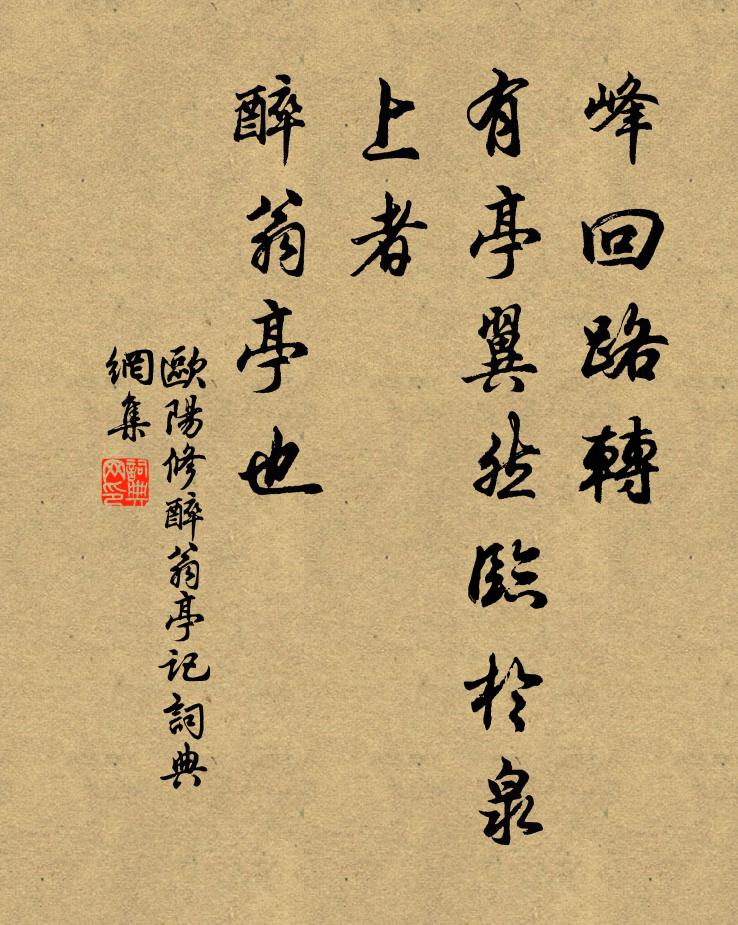 峰回路轉
有亭翼然臨於泉
上者
醉翁亭也
歐陽修醉翁亭記詞典
網集
詞典
网印